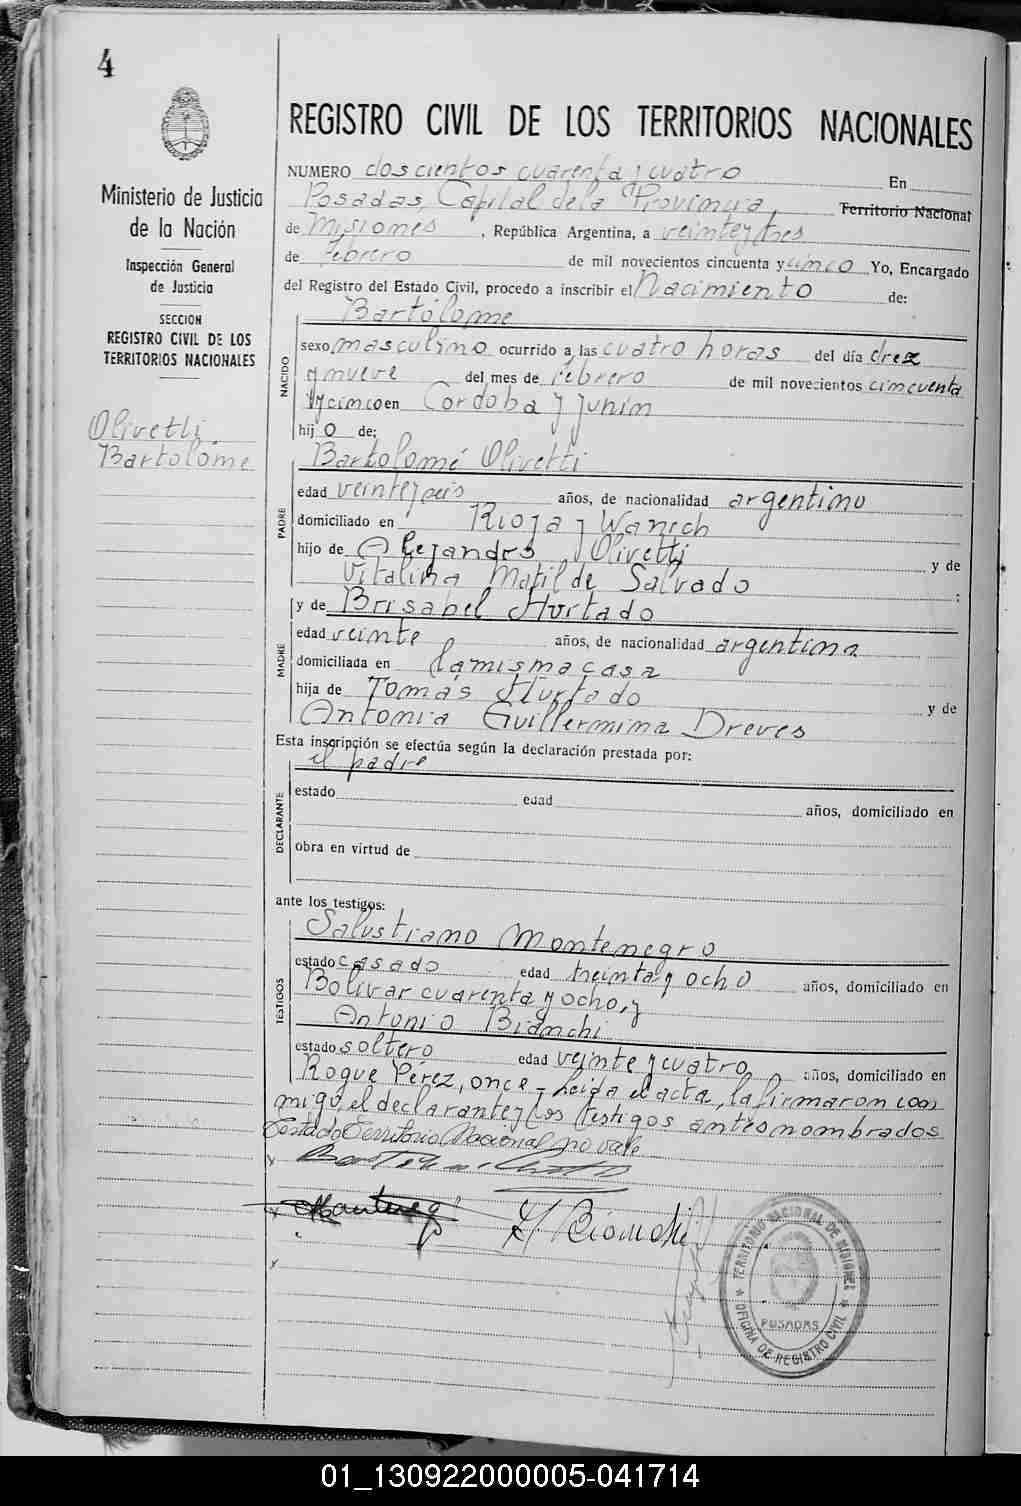 4
REGISTRO CIVIL DE LOS TERRITORIOS NACIONALES
Ministerio de Justicia
de la Nación
Inspección General
de Justicia
SECCION
REGISTRO CIVIL DE LOS
TERRITORIOS NACIONALES
Olivetti
Bartolome
NUMERO doscientos cuarenta y cuatro En
Posadas, Capital de la Provincia, Territorio Nacional
de Misiones, República Argentina, a veinte y tres
de febrero de mil novecientos cincuenta y cinco Yo, Encargado
del Registro del Estado Civil, procedo a inscribir el Nacimiento de:
Bartólome
NACIDO
sexo masculino ocurrido a las cuatro horas del día diez
y nueve del mes de febrero de mil novecientos cincuenta
y cinco en Cordoba y Junin
hijo de:
Bartolomé Olivetti
PADRE
edad veinte y seis años, de nacionalidad argentino
domiciliado en Rioja y
hijo de Alejandro Olivetti y de
Vitalina Matilde Salvado ;
y de Brisabel Hurtado
MADRE
edad veinte años, de nacionalidad argentina
domiciliada en la misma casa
hija de Tomás Hurtado y de
Antonia Guillermina Dreves
Esta inscripción se efectúa según la declaración prestada por:
el padre
DECLARANTE
estado edad años, domiciliado en
obra en virtud de
ante los testigos:
Salustiano Montenegro
TESTIGOS
estado casado edad treinta y ocho años, domiciliado en
Bolivar cuarenta y ocho, y
Antonio Bianchi
estado soltero edad veinte y cuatro, años, domiciliado en
Roque Pérez, once - Leida el acta, la firmaron con
migo, el declarante y los testigos antes nombrados
Testado Territorio Nacional no vale
x
x
A Bianchi
x
TERRITORIO NACIONAL DE MISIONES
POSADAS
* OFICINA DE REGISTRO CIVIL *
01_130922000005-041714